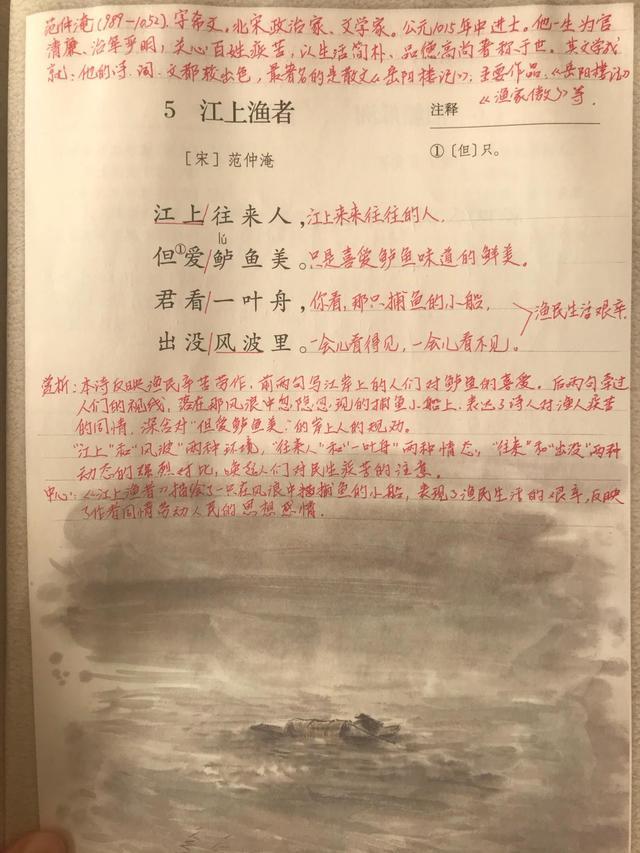 范仲淹(989-1052).字希文。北宋政治家、文学家。公元1015年中进士。他一生为官
清廉、治军严明，关心百姓疾苦，以生活简朴、品德高尚著称于世。其文学成
就：他的诗、词、文都较出色，最著名的是散文《岳阳楼记》；主要作品：《岳阳楼记》
《渔家傲》等.
5 江上渔者
注释
[宋] 范仲淹
①〔但〕只。
江上/往来人，江上来来往往的人.
lú
但①爱/鲈鱼美。只是喜爱鲈鱼味道的鲜美。
君看/一叶舟，你看，那只捕鱼的小船，
渔民生活艰辛.
出没/风波里。一会儿看得见，一会儿看不见。
赏析：本诗反映渔民辛苦劳作，前两句写江岸上的人们对鲈鱼的喜爱。后两句牵过
人们的视线，落在那风浪中忽隐忽现的捕鱼小船上.表达了诗人对渔人疾苦
的同情，深含对"但爱鲈鱼美"的岸上人的规劝。
"江上"和"风波"两种环境，"往来人"和"一叶舟"两种情态；"往来"和"出没"两种
动态的强烈对比，唤起人们对民生疾苦的注意。
中心：《江上渔者》描绘了一只在风浪中捕鱼的小船，表现了渔民生活的艰辛，反映
了作者同情劳动人民的思想感情.